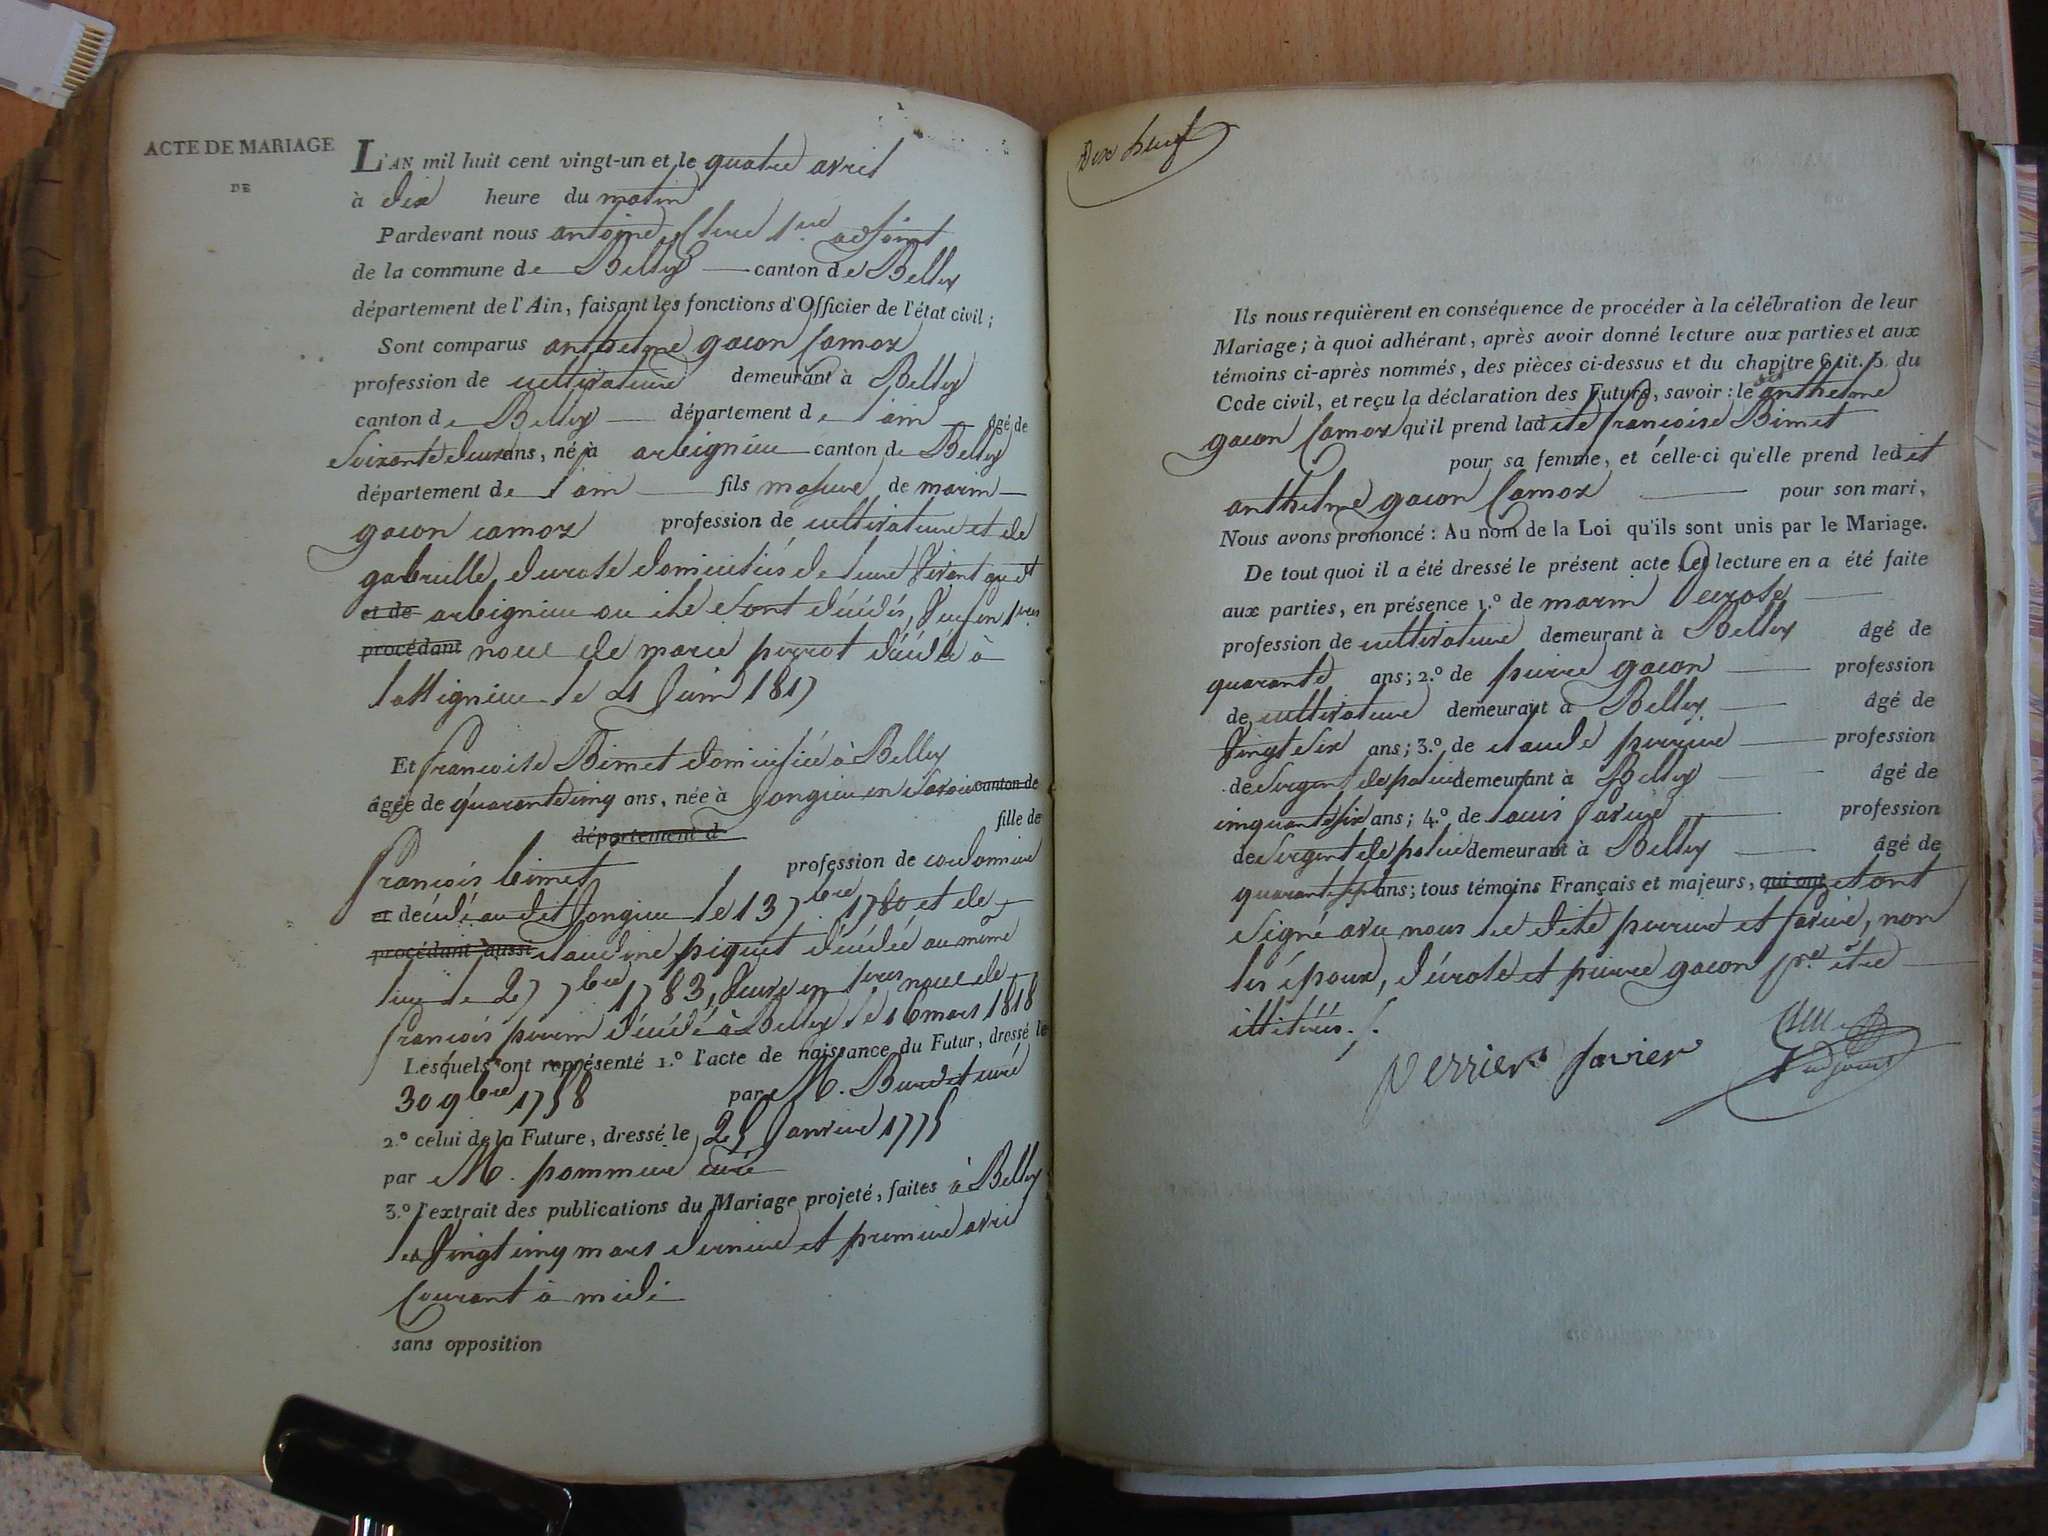 ACTE DE MARIAGE
DE
L'AN mil huit cent vingt-un et le quatre avril
à dix heure du matin
Pardevant nous antoine 1er adjoint
de la commune de Belley canton de Belley
département de l'Ain, faisant les fonctions d'Officier de l'état civil;
Sont comparus anthelme gacon Camoz
profession de cultivateur demeurant à Belley
canton de Belley département de l'ain âgé de
Soixante deux ans, né à arbignieu canton de Belley
département de l'ain fils majeur de marin
gacon camoz profession de cultivateur et de
gabrielle durose domiciliés de leur vivant
et de arbignieu ou ils sont décédés, veuf en 1res
procédant noces de marie perrot décédée à
lassignieu le 21 Juin 1817
Et françoise Bimet domiciliée à Belley
âgée de quarante cinq ans, née à Jongieu en Savoie canton de
département d fille de
françois bimet profession de cordonnier
et décédé audit Jongieu le 13 7bre 1780 et de
procédant aussi claudine piquet décédée au même
lieu le 27 7bre 1783, veuve en 1res noces de
françois perrin décédé à Belley le 16 mars 1818
Lesquels ont représenté 1.º l'acte de naissance du Futur, dressé le
30 9bre 1758 par M. Burdet curé
2.º celui de la Future, dressé le 25 Janvier 1775
par M. pommier curé
3.º l'extrait des publications du Mariage projeté, faites à Belley
les vingt cinq mars dernier et premier avril
Courant à midi
sans opposition
Dix neuf
Ils nous requièrent en conséquence de procéder à la célébration de leur
Mariage; à quoi adhérant, après avoir donné lecture aux parties et aux
témoins ci-après nommés, des pièces ci-dessus et du chapitre 6 tit. 5 du
Code civil, et reçu la déclaration des Futurs, savoir: le dit anthelme
gacon Camoz qu'il prend ladite françoise Bimet
pour sa femme, et celle-ci qu'elle prend ledit
anthelme gacon Camoz pour son mari,
Nous avons prononcé: Au nom de la Loi qu'ils sont unis par le Mariage.
De tout quoi il a été dressé le présent acte et lecture en a été faite
aux parties, en présence 1.º de marin Durose
profession de cultivateur demeurant à Belley âgé de
quarante ans; 2.º de pierre gacon profession
de cultivateur demeurant à Belley âgé de
vingt six ans; 3.º de claude perrier profession
de Sergent de police demeurant à Belley âgé de
cinquante six ans; 4.º de louis favier profession
de Sergent de police demeurant à Belley âgé de
quarante sept ans; tous témoins Français et majeurs, qui ont et ont
Signé avec nous les dits perrier et favier, non
les époux, durose et pierre gacon pr. être
illitérés./.
perrier favier
adjoint